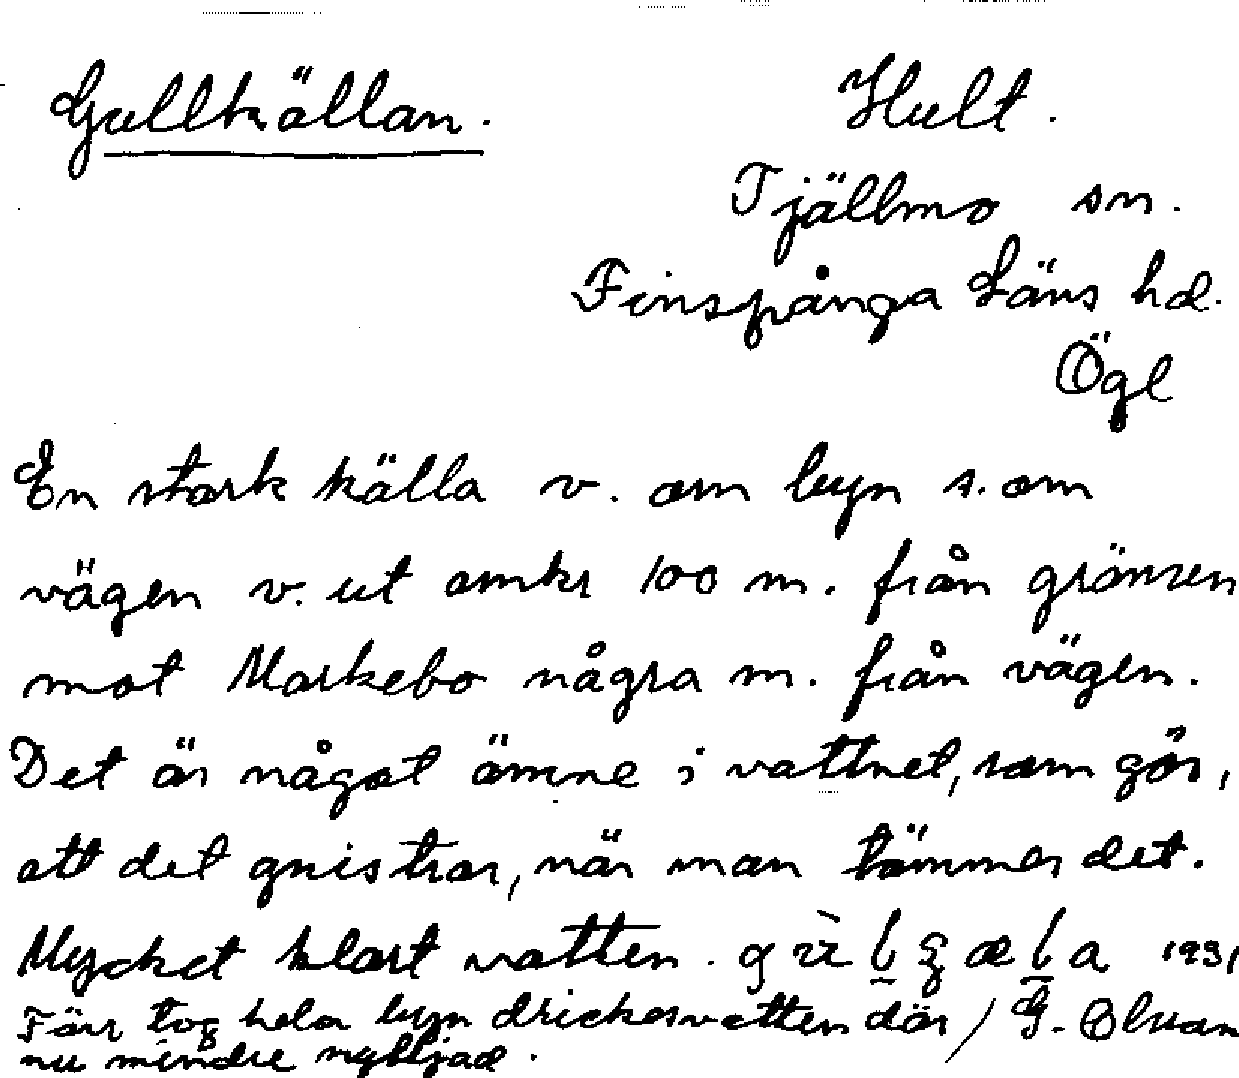 Gullkällan.
Hult.
Tjällmo sn.
Finspånga Läns hd.
Ögl
En stark källa v. om byn s. om
vägen v. ut omkr 100 m. från gränsen
mot Markebo några m. från vägen.
Det är något ämne i vattnet, som gör,
att det gnistrar, när man tömmer det.
Mycket klart vatten. 1931
Förr tog hela byn dricksvatten där / G. Olsson
nu mindre nyttjad.